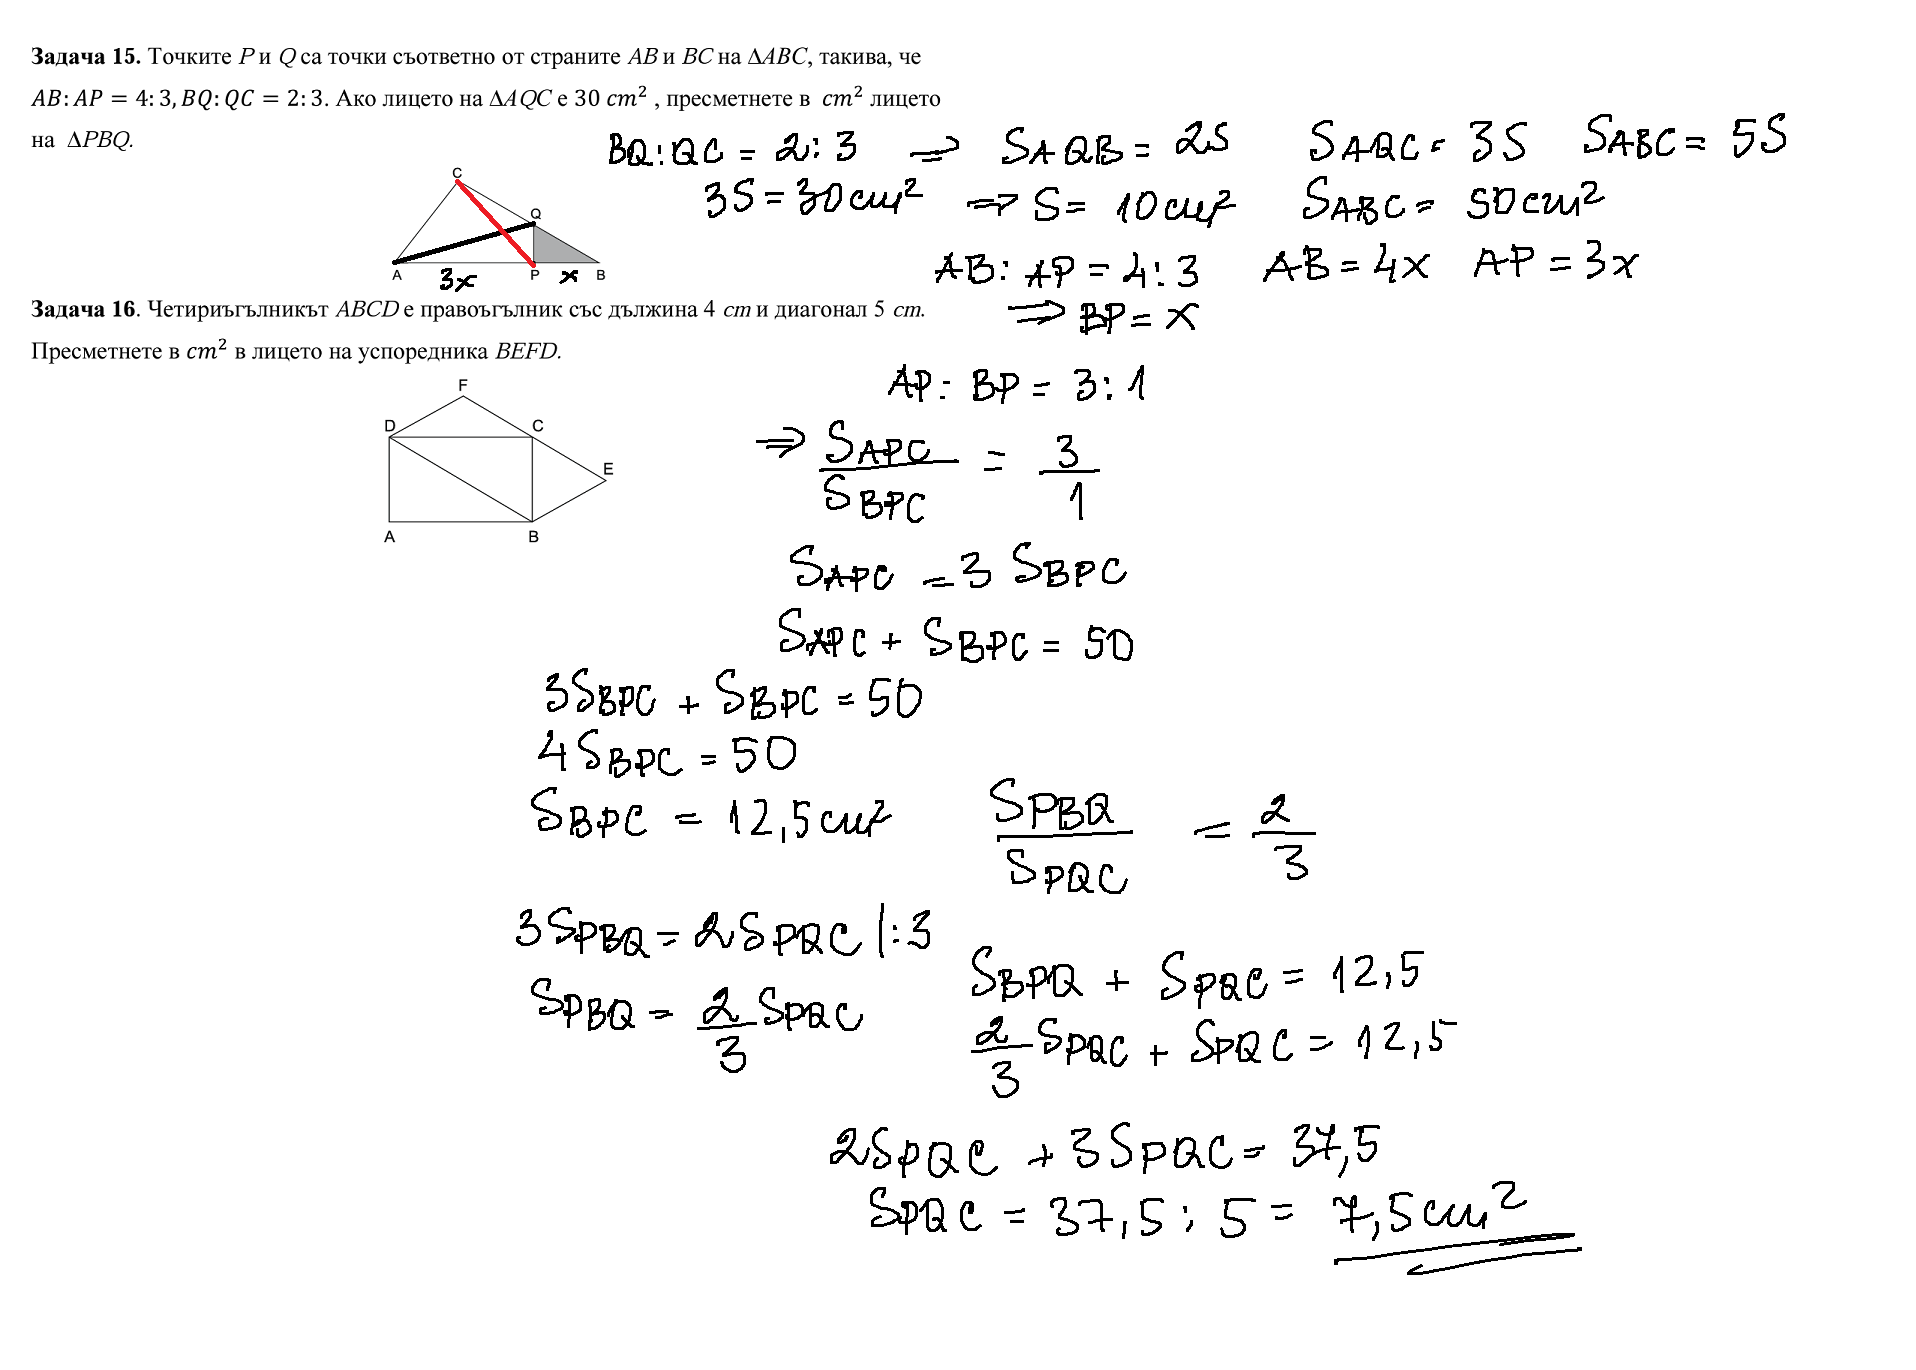 Задача 15. Точките P и Q са точки съответно от страните AB и BC на ∆ABC, такива, че
AB: AP = 4: 3, BQ: QC = 2: 3. Ако лицето на ∆AQC е 30 cm² , пресметнете в cm² лицето
на ∆PBQ.
BQ:QC = 2:3 ⇒ SAQB = 2S SAQC = 3S SABC = 5S
3S = 30 см² ⇒ S = 10 см² SABC = 50 см²
C
Q
A 3x P x B
AB: AP = 4:3 AB = 4x AP = 3x
⇒ BP = x
Задача 16. Четириъгълникът ABCD е правоъгълник със дължина 4 cm и диагонал 5 cm.
Пресметнете в cm² в лицето на успоредника BEFD.
F
D C
E
A B
AP: BP = 3:1
⇒ SAPC / SBPC = 3 / 1
SAPC = 3 SBPC
SAPC + SBPC = 50
3SBPC + SBPC = 50
4SBPC = 50
SBPC = 12,5 см²
SPBQ / SPQC = 2 / 3
3SPBQ = 2SPQC |:3
SPBQ = 2/3 SPQC
SBPQ + SPQC = 12,5
2/3 SPQC + SPQC = 12,5
2SPQC + 3SPQC = 37,5
SPQC = 37,5 : 5 = 7,5 см²